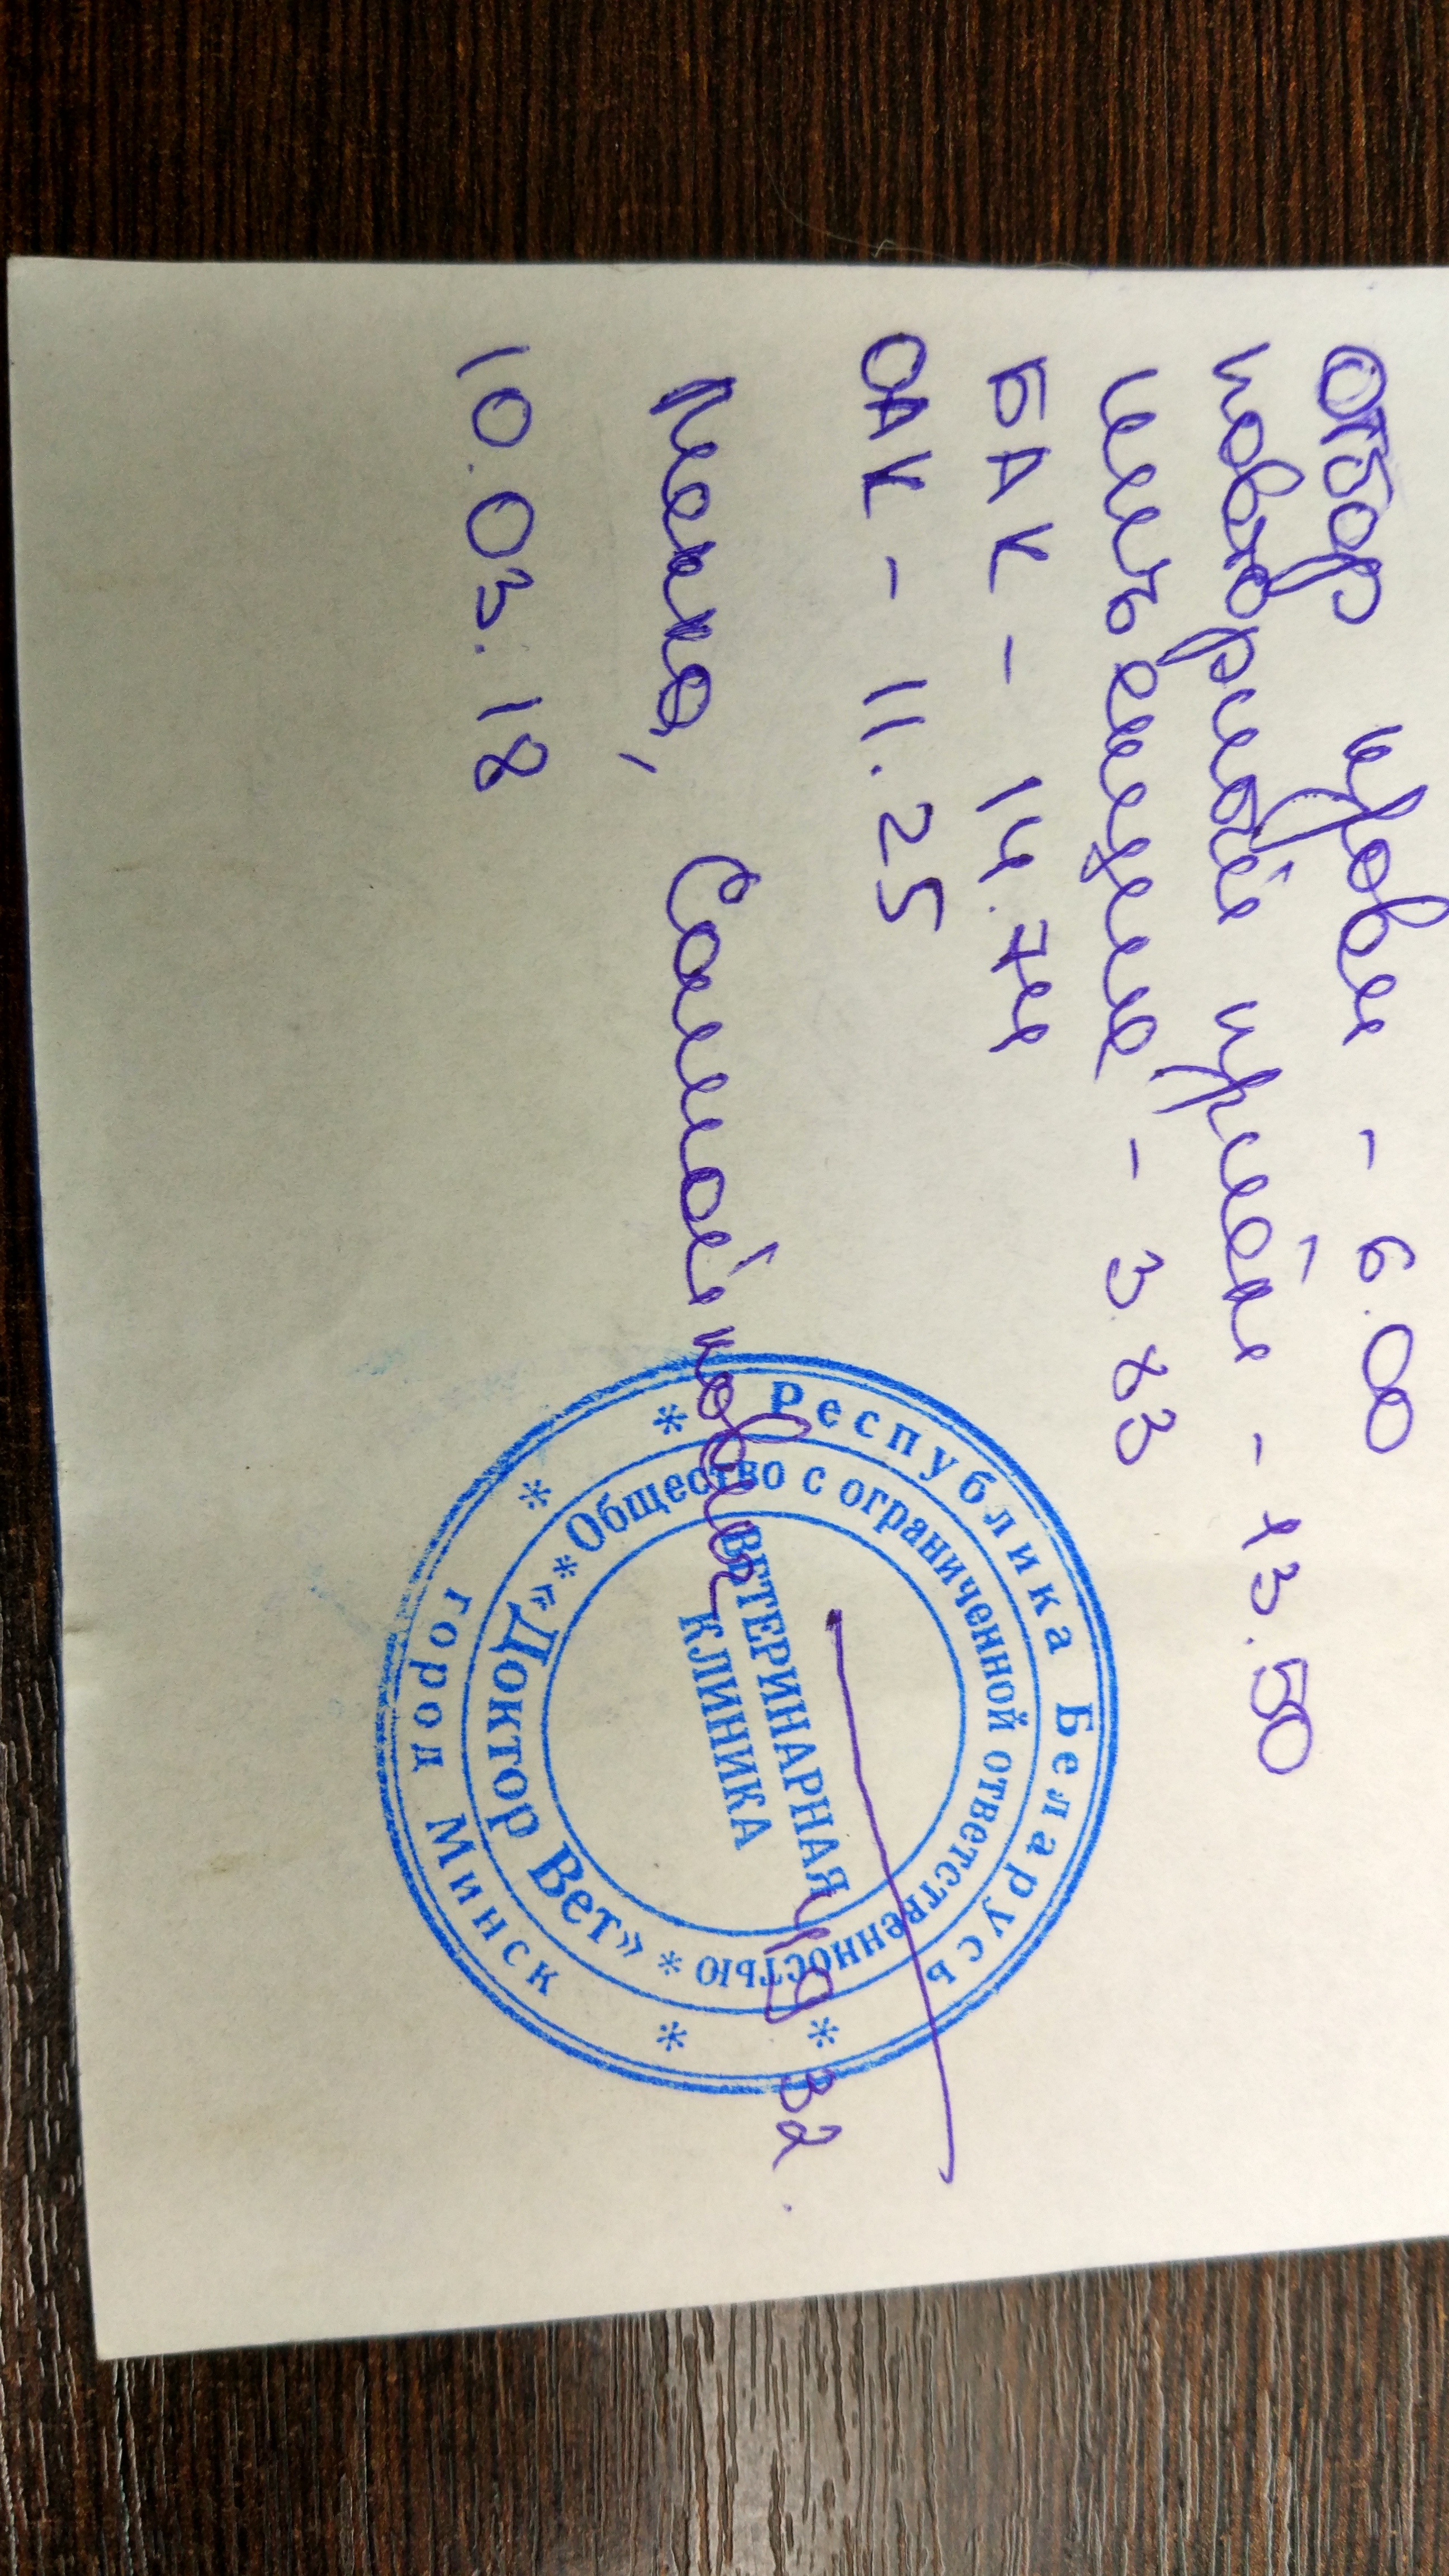 Отбор крови - 6.00
повторный приём - 13.50
инъекция - 3.83
БАК - 14.74
ОАК - 11.25
49.32.
10.03.18
Республика Беларусь
Общество с ограниченной ответственностью
ВЕТЕРИНАРНАЯ
КЛИНИКА
«Доктор Вет»
город Минск